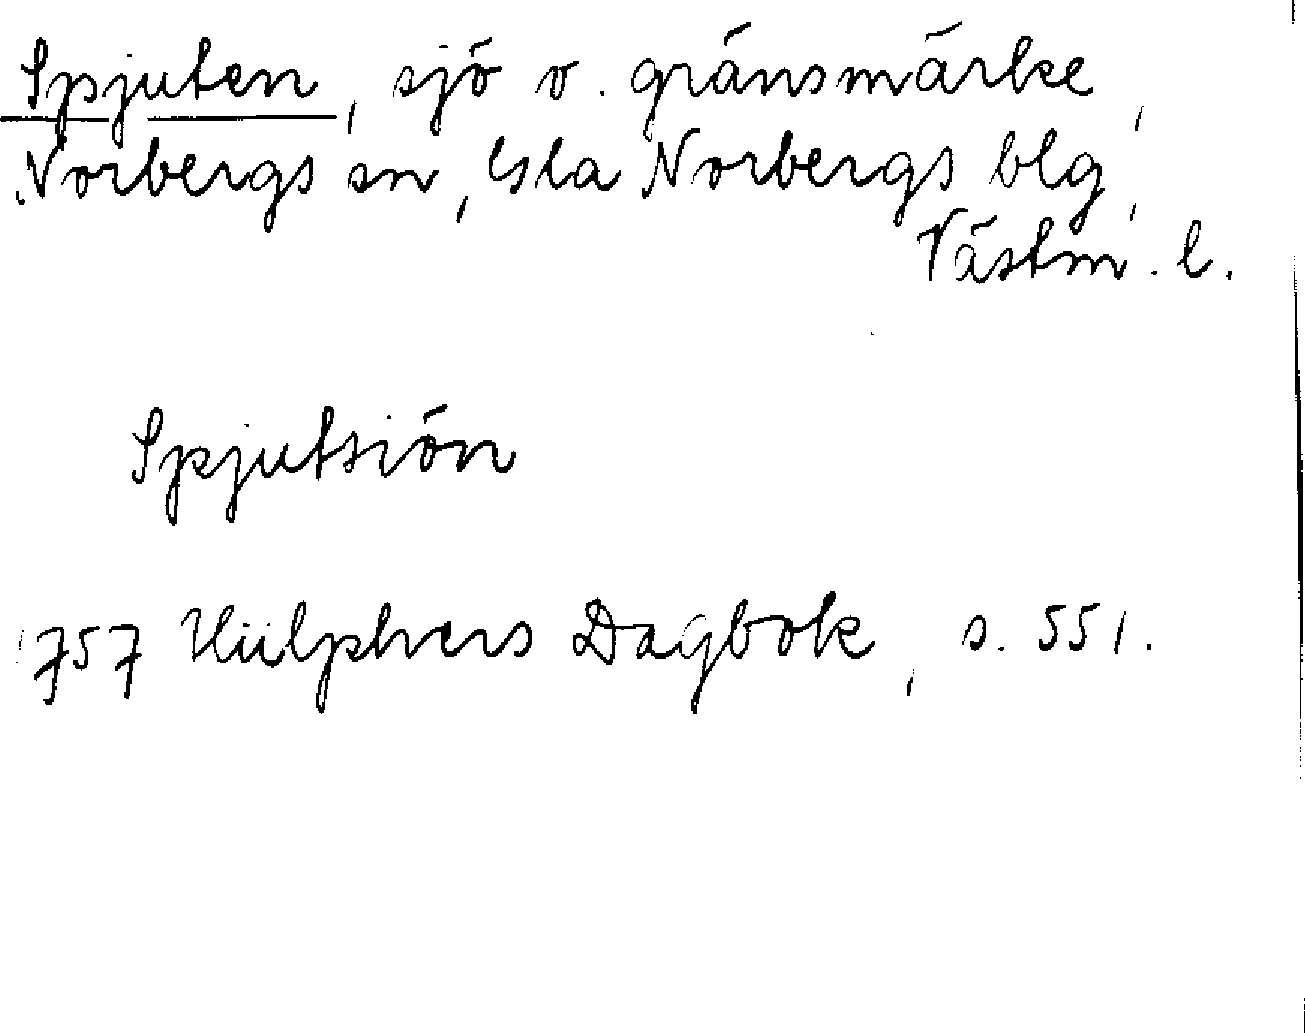 Spjuten, sjö o. gränsmärke,
Norbergs sn, Gla Norbergs blg,
Västm. l.
Spjutsiön
1757 Hülphers Dagbok, s. 551.